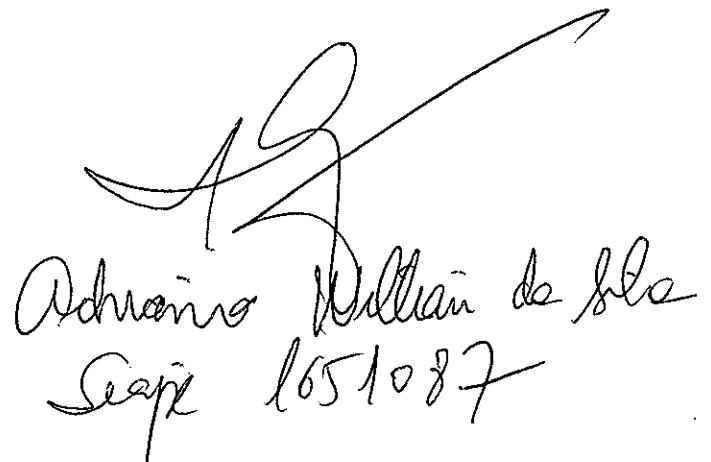 Adriano Willian da Silva
Siape 1651087